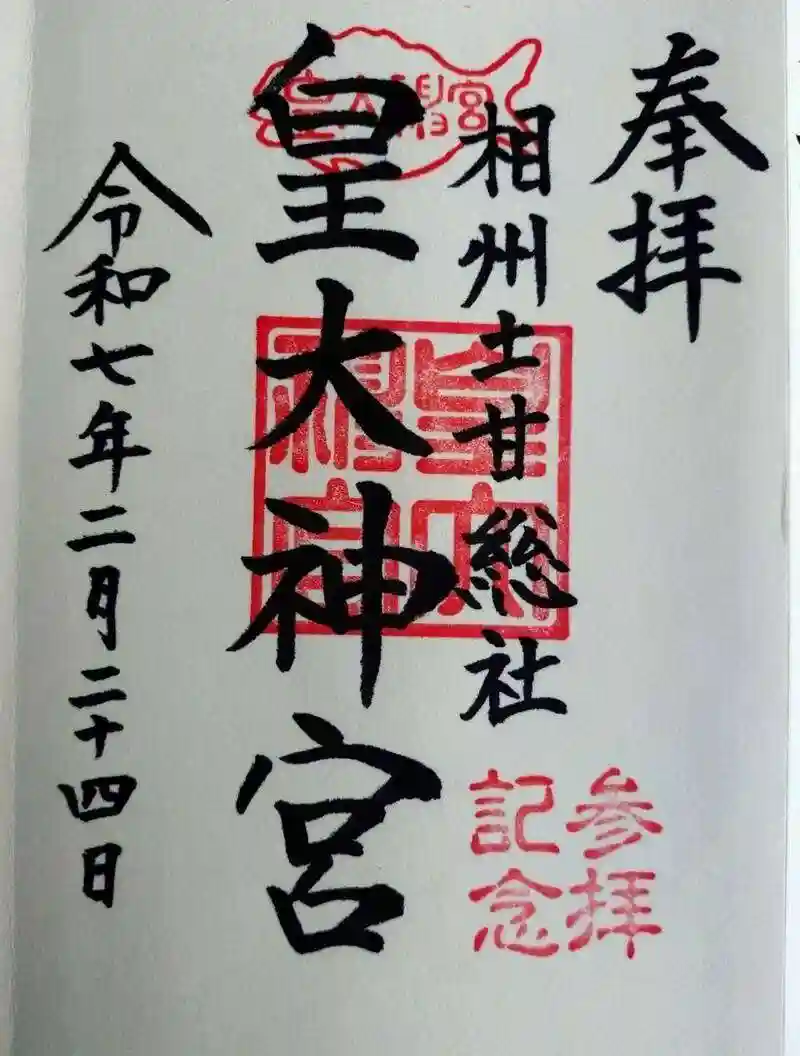 奉拝
相州土甘総社
皇大神宮
令和七年二月二十四日
皇大神宮
皇大
神宮
参拝
記念